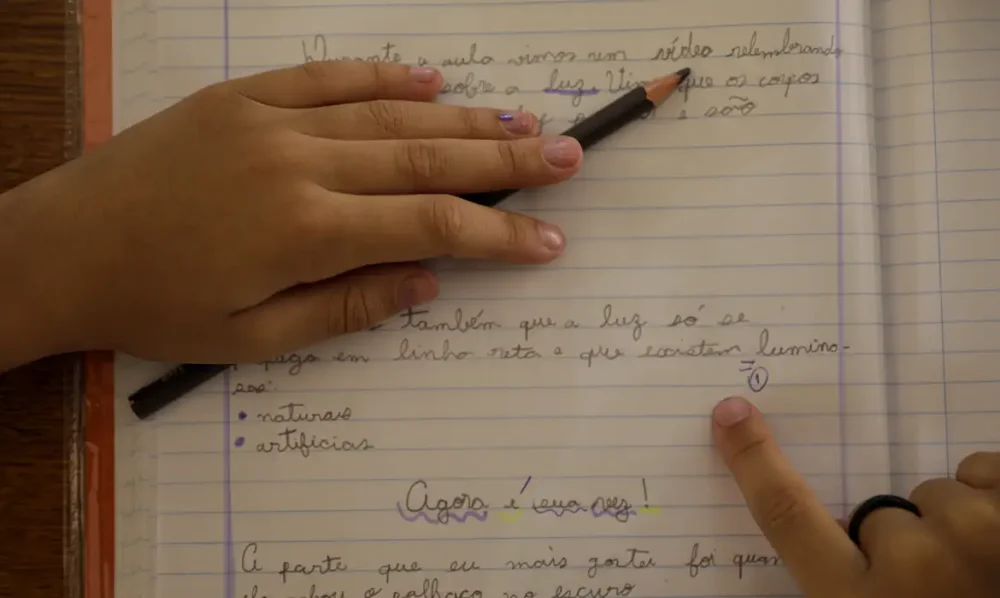 Durante a aula vimos um vídeo relembrando
sobre a luz. que os corpos
e são
também que a luz só se
paga em linha reta e que existem lumino-
sos:
• naturais
• artificiais
①
Agora é sua vez!
A parte que eu mais gostei foi quan
o palhaço no escuro